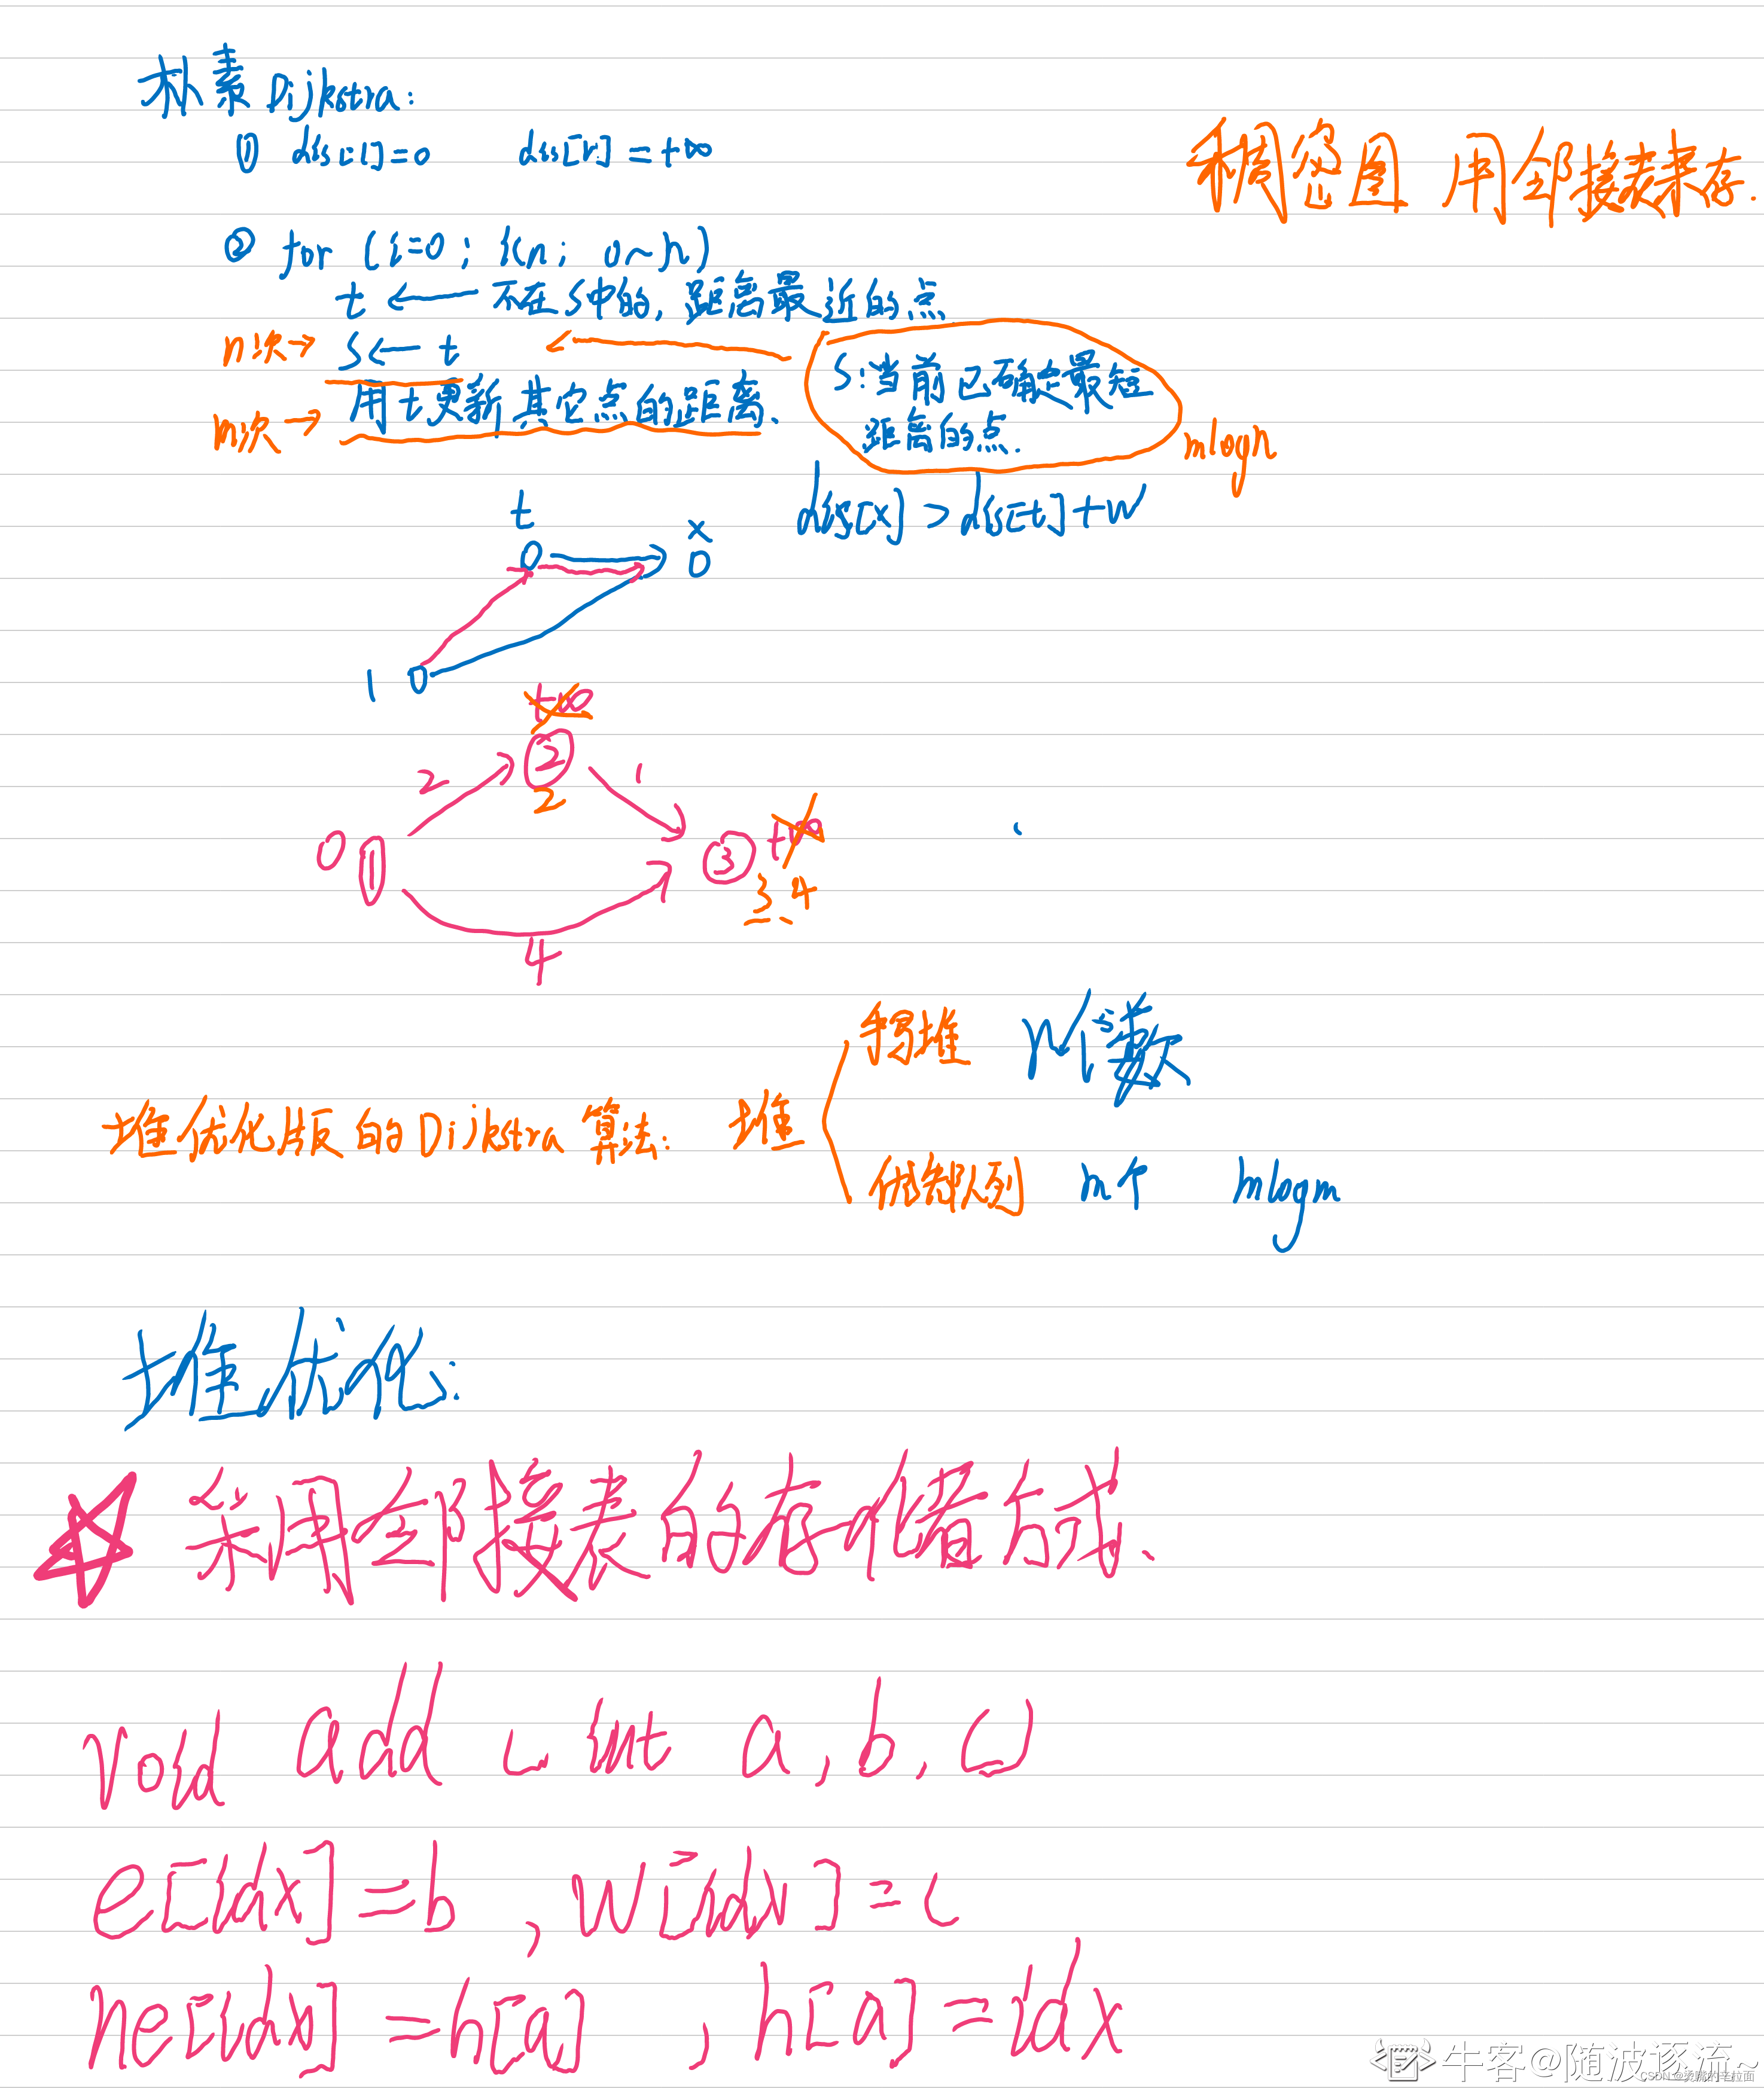 朴素Dijkstra:
① dis[1]=0 dis[v]=+∞
稠密图 用邻接表来存.
② for (i=0; i<n; 0~n)
t ← 不在S中的, 距离最近的点
n次→ S←t
S:当前已确定最短
距离的点.
m次→ 用t更新其它点的距离.
mlogn
dis[x] > dis[t]+w
t
x
1
+∞
2
②
1
2
0
①
③
+∞
3 4
4
手写堆 n个数
堆优化版的Dijkstra算法: 堆
优先队列 m个 mlogm
堆优化:
采用邻接表的存储方式.
void add (int a, b, c)
e[idx]=b , w[idx]=c
ne[idx]=h[a] , h[a]=idx
牛客@随波逐流~
CSDN @烫嘴的辛拉面